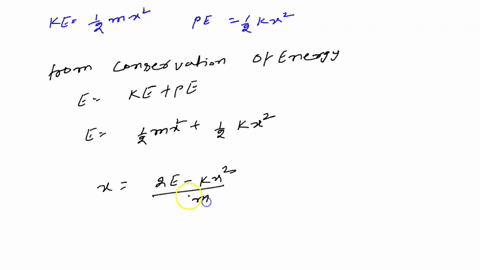 KE = 1/2 mx² PE = 1/2 Kx²
from conservation of Energy
E = KE + PE
E = 1/2 mx² + 1/2 Kx²
x = 2E - Kx² / m